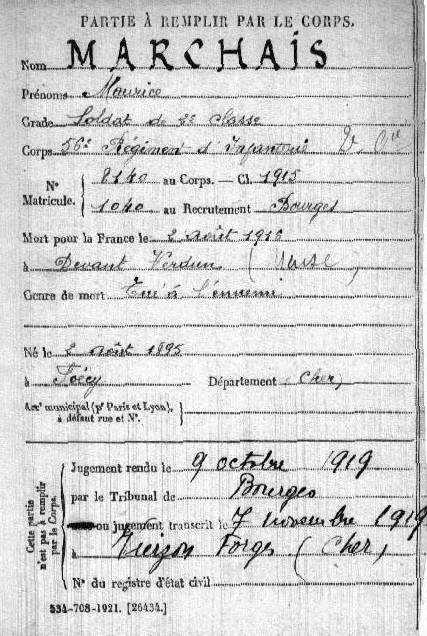 PARTIE À REMPLIR PAR LE CORPS.
Nom MARCHAIS
Prénoms Maurice
Grade Soldat de 2e Classe
Corps 56e Régiment d'Infanterie
N° Matricule. 8140 au Corps. — Cl. 1915
1040 au Recrutement Bourges
Mort pour la France le 2 août 1916
à Devant Verdun (Meuse)
Genre de mort Tué à l'ennemi
Né le 2 août 1895
à Foëcy Département (Cher)
Arrt municipal (pr Paris et Lyon), à défaut rue et N°.
Cette partie n'est pas à remplir par le Corps.
Jugement rendu le 9 octobre 1919
par le Tribunal de Bourges
ou jugement transcrit le 7 novembre 1919
à Vierzon Forges (Cher)
N° du registre d'état civil
534-708-1921. [26434.]